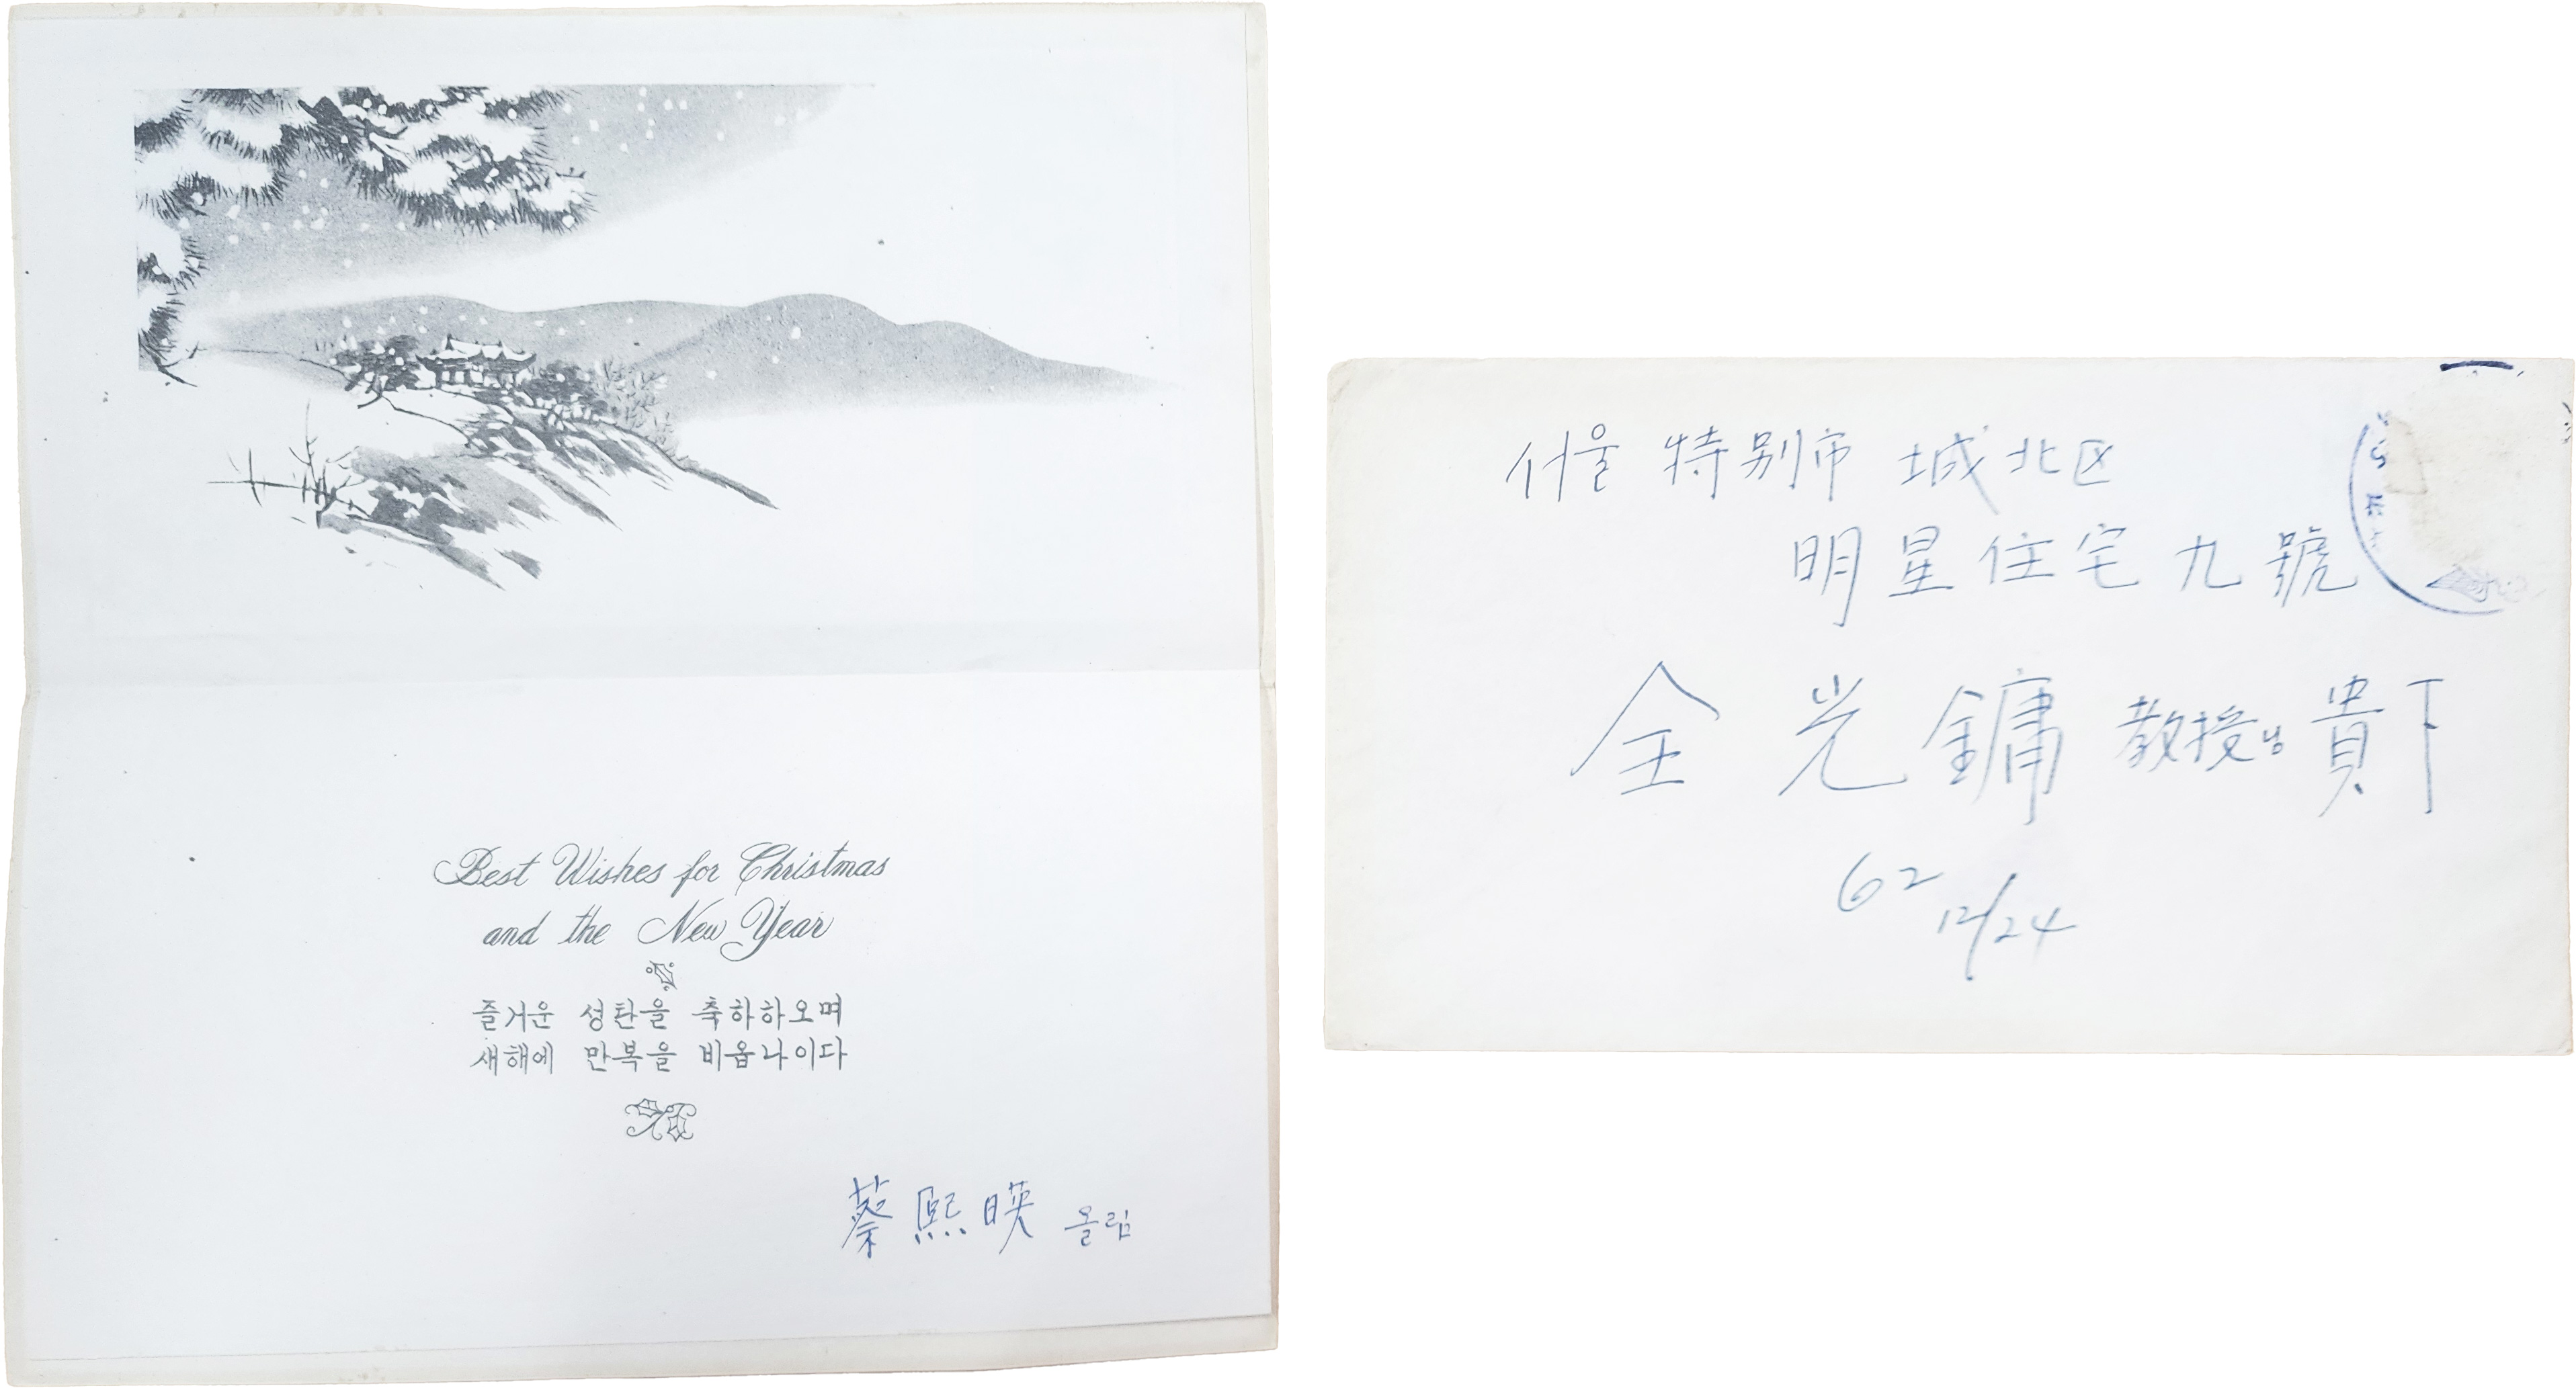 Best Wishes for Christmas
and the New Year
즐거운 성탄을 축하하오며
새해에 만복을 비옵나이다
蔡熙暎 올림
서울 特別市 城北区
明星住宅 九號
全光鏞 教授님 貴下
62 12/24